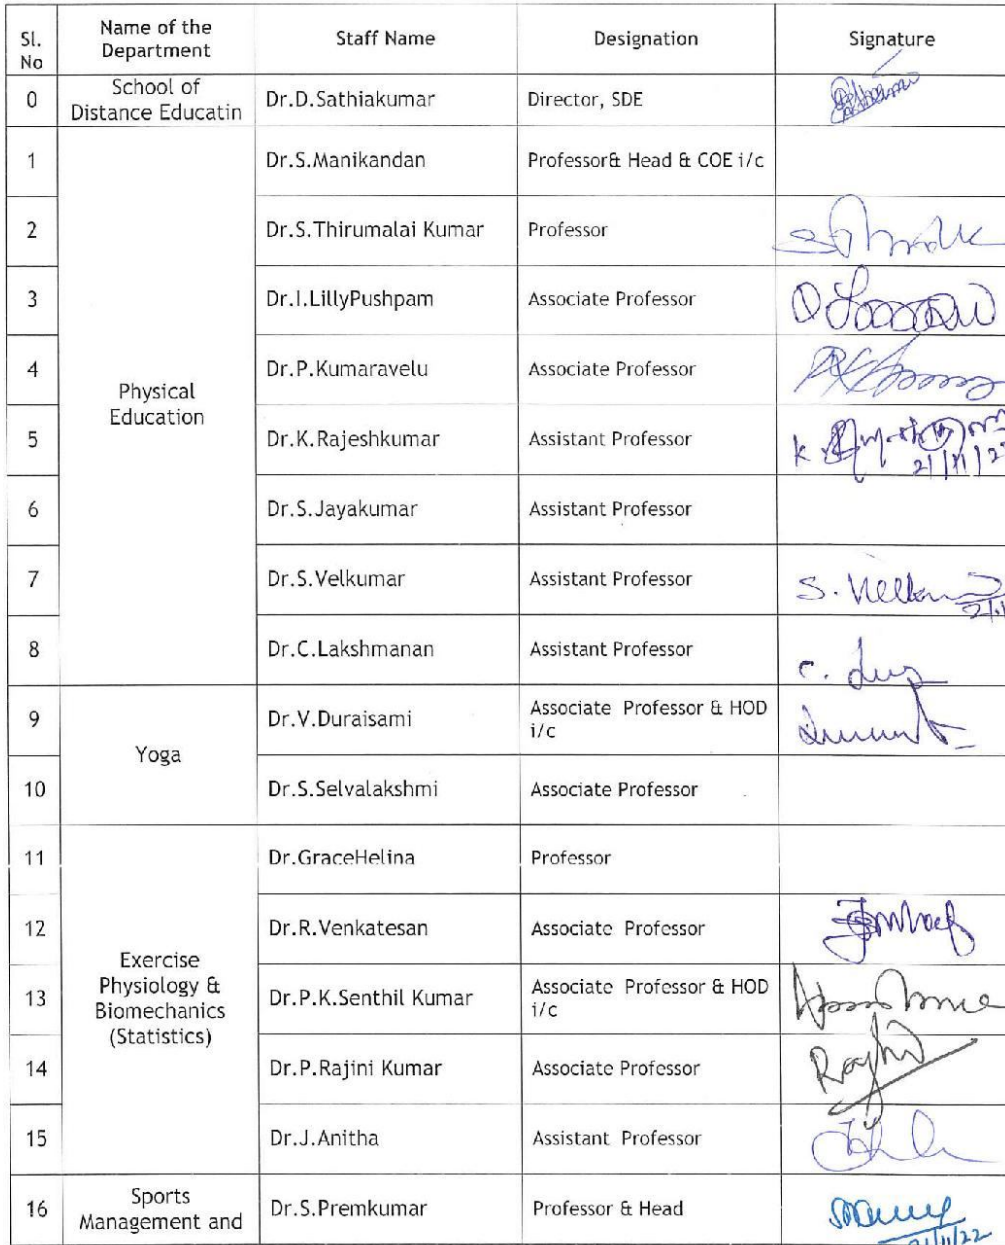 Sl. No Name of the Department Staff Name Designation Signature
0 School of Distance Educatin Dr.D.Sathiakumar Director, SDE
1 Physical Education Dr.S.Manikandan Professor& Head & COE i/c
2 Dr.S.Thirumalai Kumar Professor
3 Dr.I.LillyPushpam Associate Professor
4 Dr.P.Kumaravelu Associate Professor
5 Dr.K.Rajeshkumar Assistant Professor
6 Dr.S.Jayakumar Assistant Professor
7 Dr.S.Velkumar Assistant Professor
8 Dr.C.Lakshmanan Assistant Professor
9 Yoga Dr.V.Duraisami Associate Professor & HOD i/c
10 Dr.S.Selvalakshmi Associate Professor
11 Exercise Physiology & Biomechanics (Statistics) Dr.GraceHelina Professor
12 Dr.R.Venkatesan Associate Professor
13 Dr.P.K.Senthil Kumar Associate Professor & HOD i/c
14 Dr.P.Rajini Kumar Associate Professor
15 Dr.J.Anitha Assistant Professor
16 Sports Management and Dr.S.Premkumar Professor & Head 21/11/22